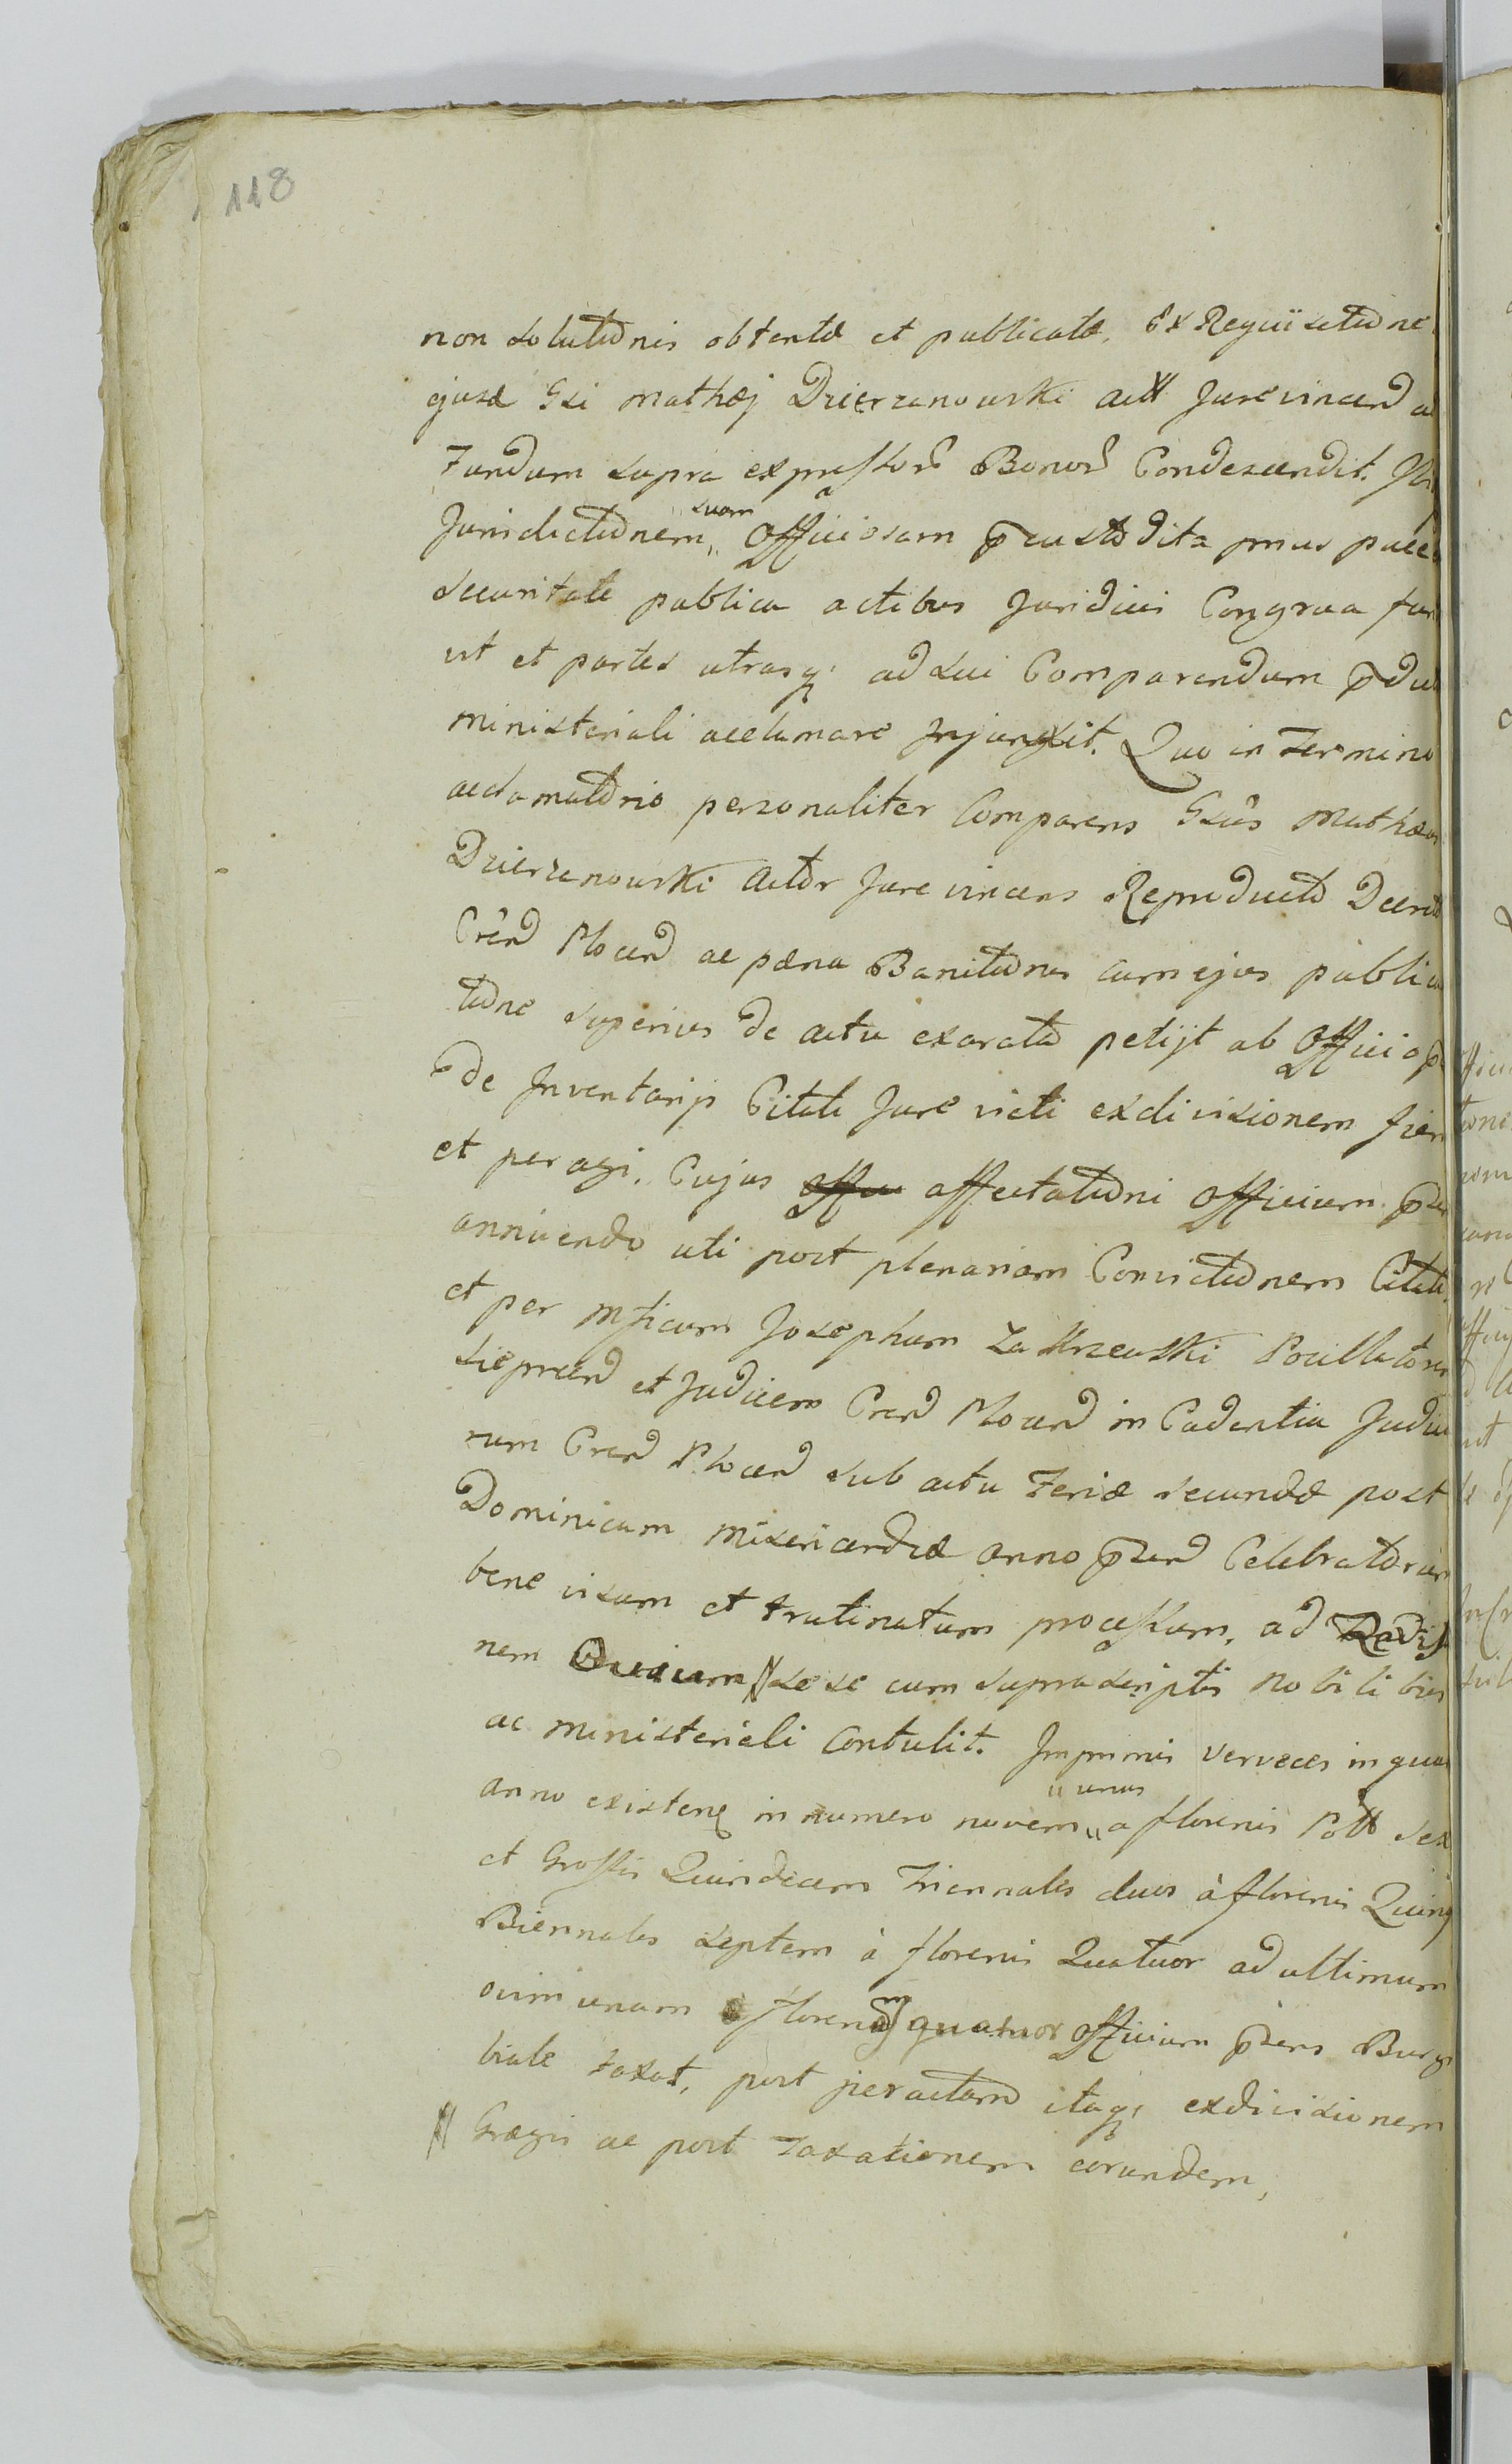 118
non solutionis obtentæ et publicatæ, Ex Requisitione
ejusd Gsi Mathæj Dzierzanowski actt Jure vincend a
Fundum supra expressor Bonor Condescendit. Ibi
Jurisdictionem suam officiosam p custodita prius pace
securitate publica actibus Juridicis Congrua fun
ut et partes utrasq; ad sui Comparendum pdu
ministeriali acclamare Injunxit. Quo in Termino
acclamatorio personaliter Comparens Gsus Mathæus
Dzierzanowski Actor Jure vincens Reproducto Decret
Crend Plocend ac pæna Banitionis cum ejus publica
tione superius de actu exarata petijt ab Officio p
de Inventarijs Citati Jure victi exdivisionem fieri
et peragi. Cujus affectationi officium psen
annuendo uti post plenariam Convictionem Citati
et per Mficum Josephum Zakrzewski Pocillatorem
Sieprcend et Judicem Crend Plocend in Cadentia Judicio
rum Crend Plocend sub actu Feriæ secundæ post
Dominicam Misericordiæ anno psend Celebratorum
bene visum et trutinatum processum, ad
nem Ovium sese cum suprascriptis Nobilibus
ac ministeriali contulit. Imprimis verveces in quar
anno existen in numero novem unus a florenis Poll sex
et Grossis Quindecem Triennales duos à florenis Quinq
Biennales septem à florenis Quatuor ad ultimum
ovim unam florenis quatuor officium psens Burgr
biale taxat, post peractam itaq; exdivisionem
Grægis ac post Taxationem eorundem,